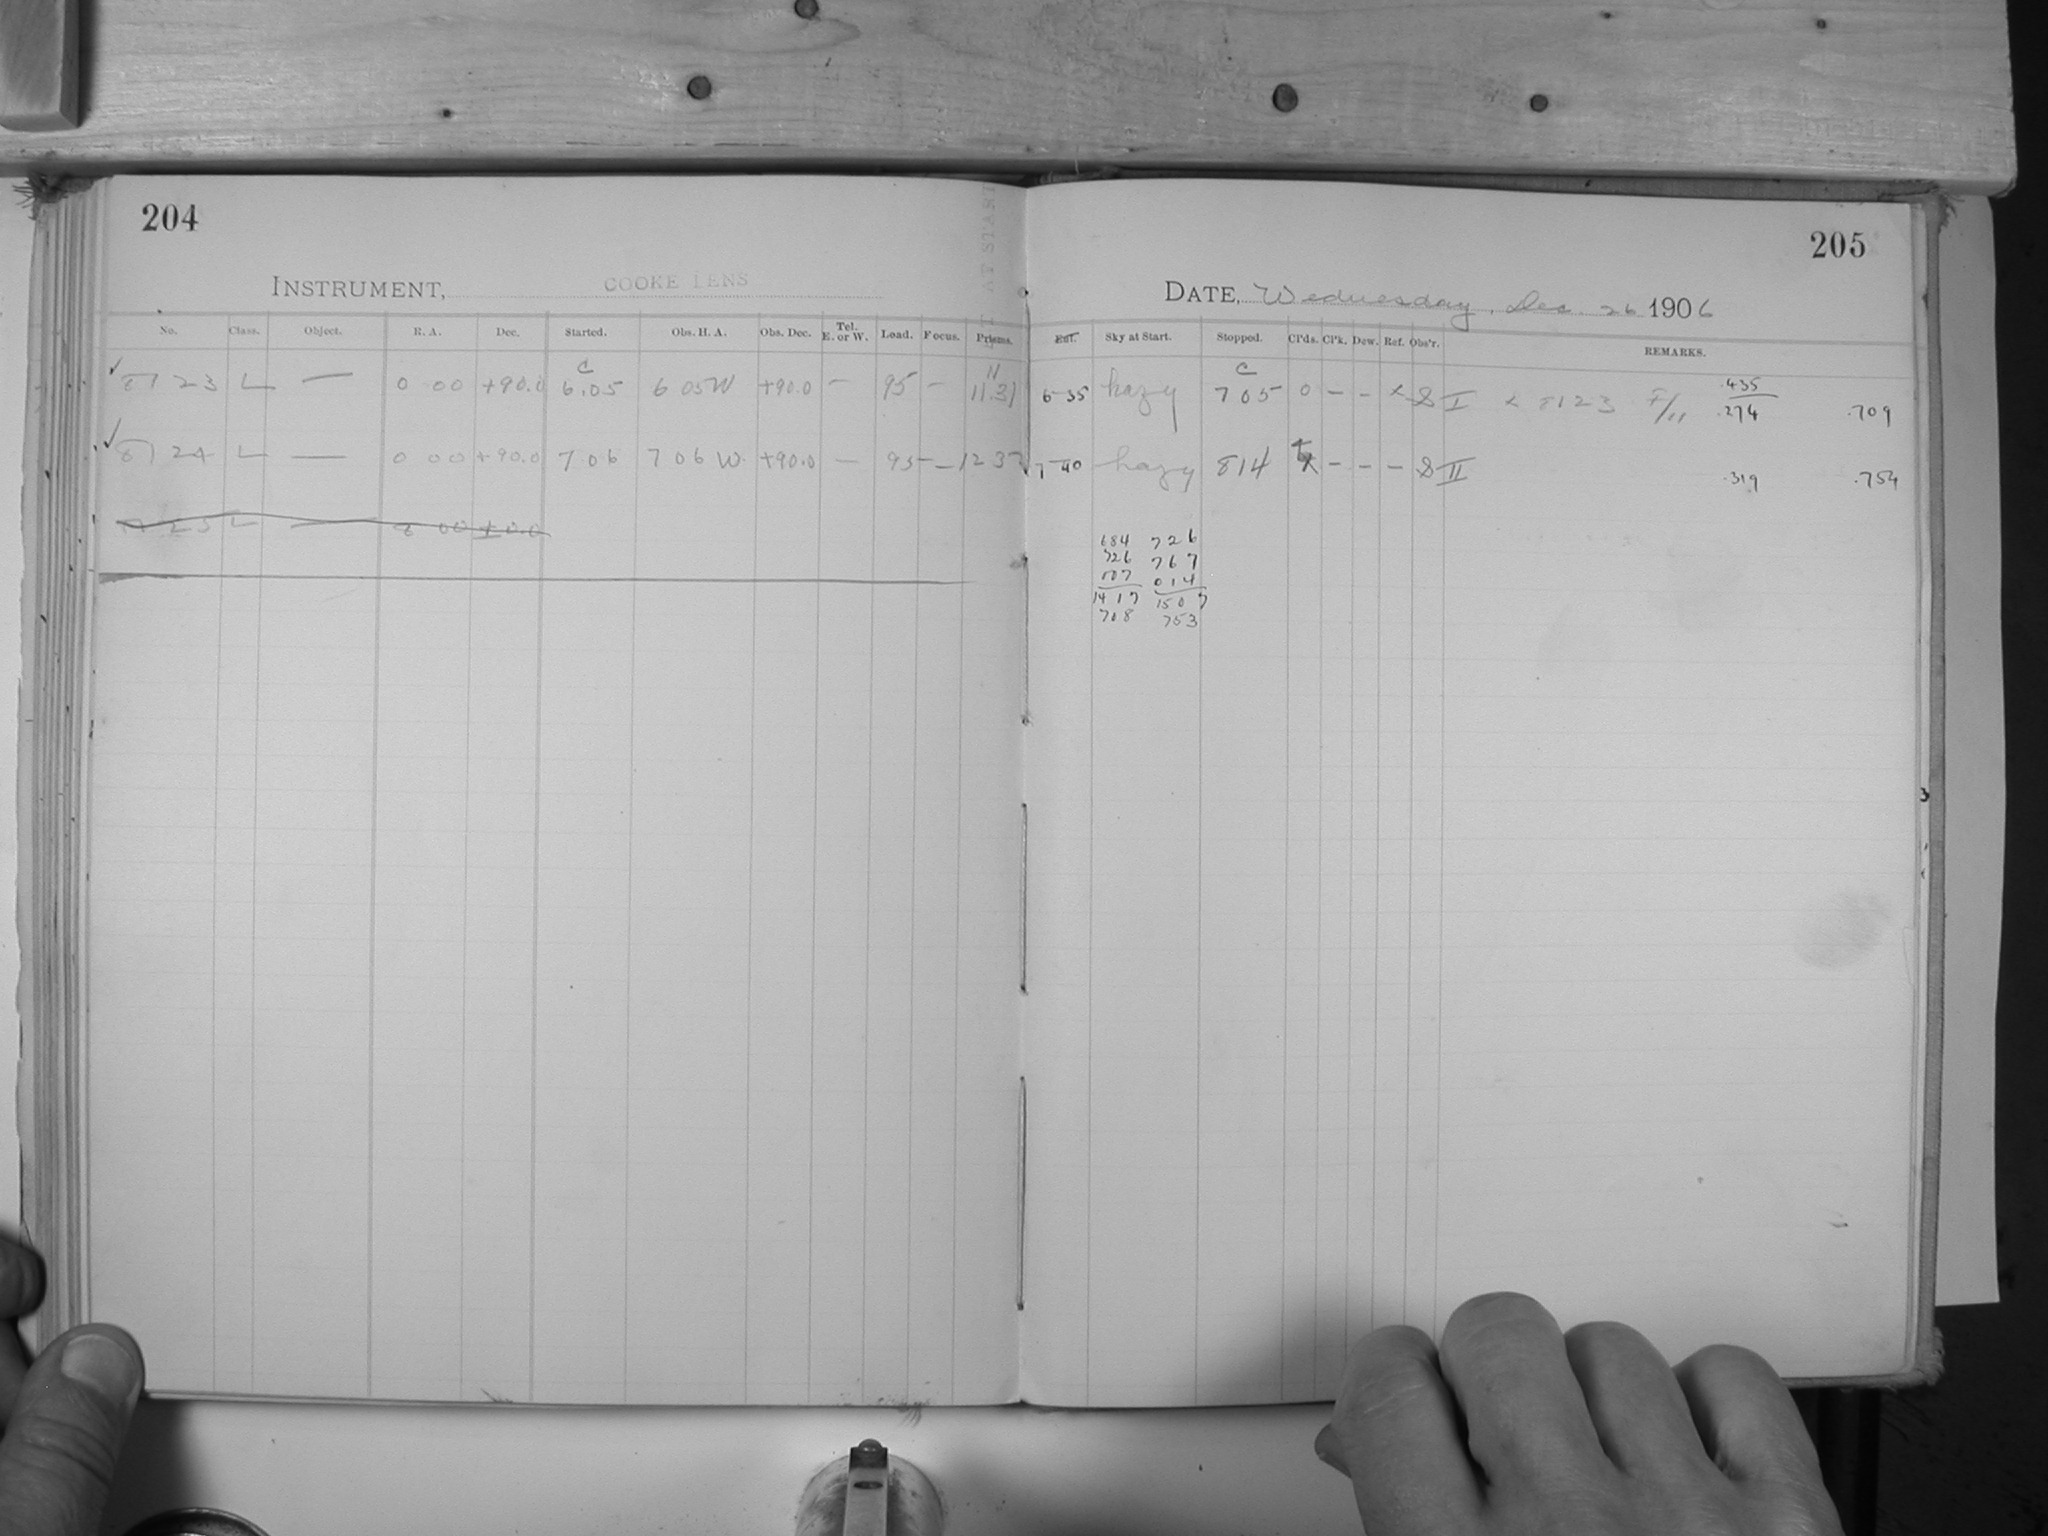 204
INSTRUMENT, COOKE LENS
No. Class. Object. R. A. Dec. Started. Obs. H. A. Obs. Dec. Tel. E. or W. Load. Focus. Prisms.
✓ 8123 L — 0 00 +90.0 C 6.05 6 05 W +90.0 — 95 — 11 31
✓ 8124 L — 0 00 +90.0 7 06 7 06 W. +90.0 — 95 — 12 32
AT START
205
DATE, Wednesday, Dec. 26 1906
Ent. Sky at Start. Stopped. Cl'ds. Cl'k. Dew. Ref. Obs'r. REMARKS.
6-35 hazy C 7 05 0 - - < S I < 8123 F/11 .435 .274 .709
7-40 hazy 814 - - - S II .319 .754
684 726
726 767
007 014
1417 1507
708 753